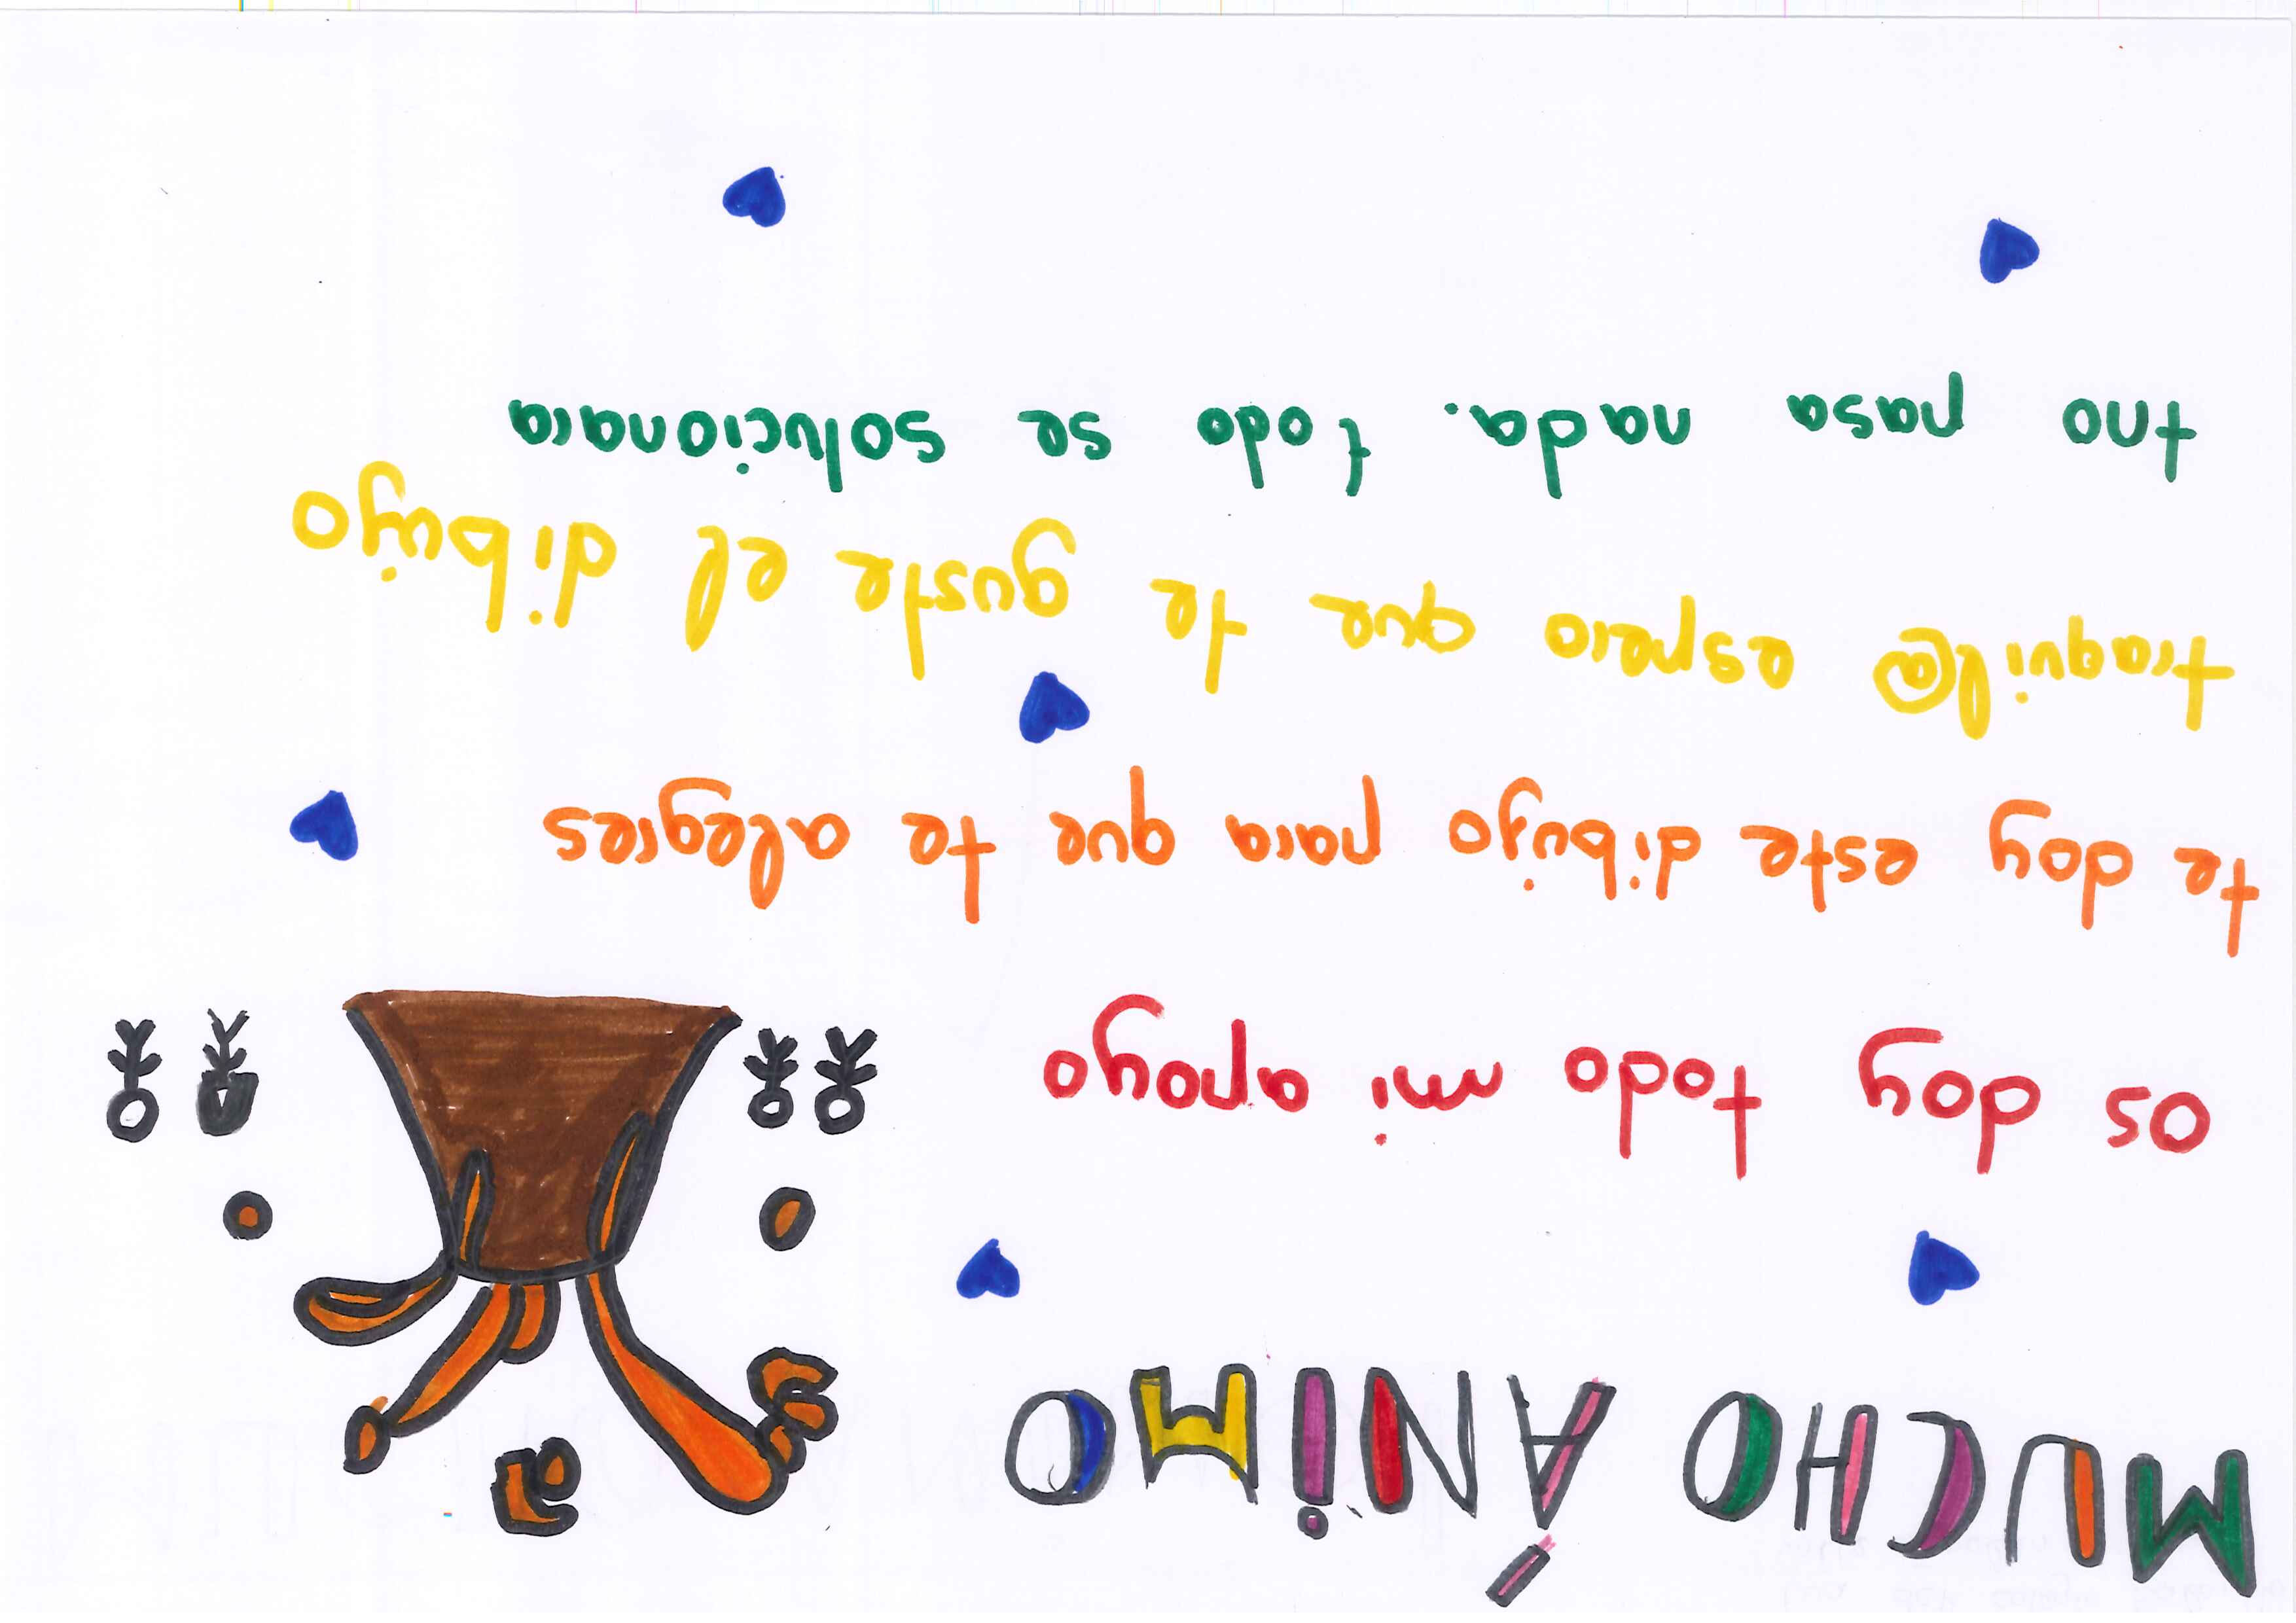 MUCHO ÁNiMO
os doy todo mi apoyo
te doy este dibujo para que te alegres
traquil@ espero que te guste el dibujo
tno pasa nada. todo se solucionara